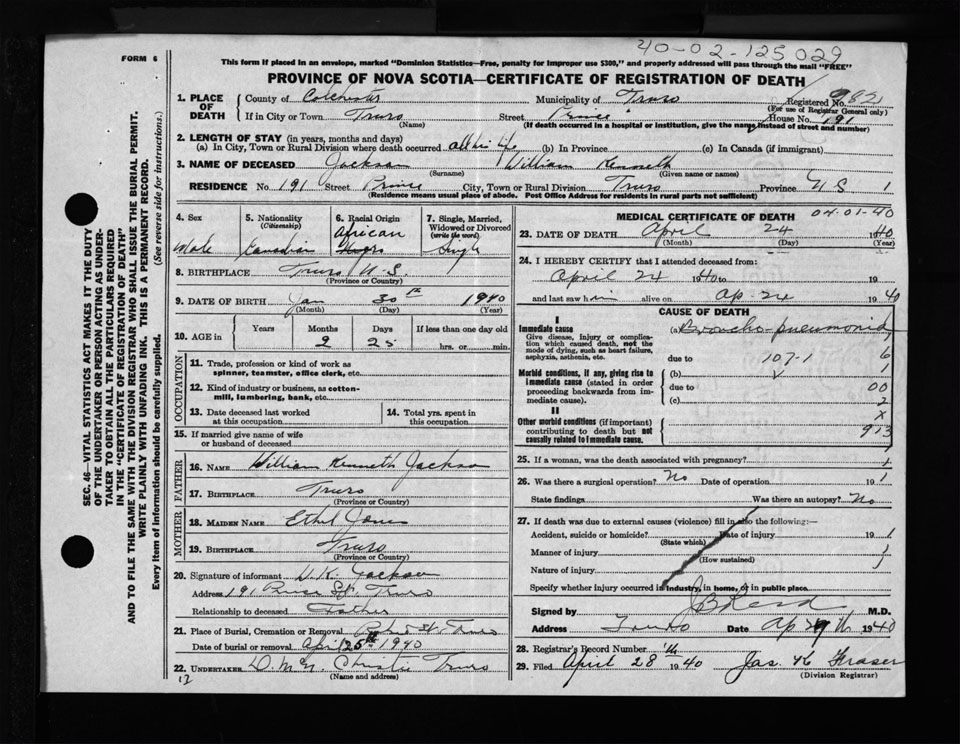 40-02-125029
FORM 6
This form if placed in an envelope, marked "Dominion Statistics—Free, penalty for improper use $300," and properly addressed will pass through the mail "FREE"
PROVINCE OF NOVA SCOTIA—CERTIFICATE OF REGISTRATION OF DEATH
1. PLACE OF DEATH { County of Colchester Municipality of Truro Registered No. 982
(For use of Registrar General only)
If in City or Town Truro Street Prince House No. 191
(Name) (If death occurred in a hospital or institution, give the name instead of street and number)
2. LENGTH OF STAY (in years, months and days)
(a) In City, Town or Rural Division where death occurred all his life (b) In Province (c) In Canada (if immigrant)
3. NAME OF DECEASED Jackson William Kenneth
(Surname) (Given name or names)
RESIDENCE No. 191 Street Prince City, Town or Rural Division Truro Province N S 1
(Residence means usual place of abode. Post Office Address for residents in rural parts not sufficient)
4. Sex
Male
5. Nationality
(Citizenship)
Canadian
6. Racial Origin
African
7. Single, Married, Widowed or Divorced
(write the word)
Single
8. BIRTHPLACE Truro N.S.
(Province or Country)
9. DATE OF BIRTH Jan 30th 1940
(Month) (Day) (Year)
10. AGE in { Years Months Days If less than one day old
2 25 hrs. or min.
OCCUPATION
11. Trade, profession or kind of work as spinner, teamster, office clerk, etc.
12. Kind of industry or business, as cotton-mill, lumbering, bank, etc.
13. Date deceased last worked at this occupation
14. Total yrs. spent in this occupation
15. If married give name of wife or husband of deceased
FATHER
16. NAME William Kenneth Jackson
17. BIRTHPLACE Truro
(Province or Country)
MOTHER
18. MAIDEN NAME Ethel Jones
19. BIRTHPLACE Truro
(Province or Country)
20. Signature of informant W.K. Jackson
Address 191 Prince St. Truro
Relationship to deceased Father
21. Place of Burial, Cremation or Removal Robert St. Truro
Date of burial or removal April 25th 1940
22. UNDERTAKER Christie Truro
(Name and address)
12
MEDICAL CERTIFICATE OF DEATH
04-01-40
23. DATE OF DEATH April 24 1940
(Month) (Day) (Year)
24. I HEREBY CERTIFY that I attended deceased from:
April 24 1940 to 19
and last saw him alive on Ap. 24 1940
CAUSE OF DEATH
I
Immediate cause
Give disease, injury or complication which caused death, not the mode of dying, such as heart failure, asphyxia, asthenia, etc.
(a) Broncho-pneumonia
due to 107-1
Morbid conditions, if any, giving rise to immediate cause (stated in order proceeding backwards from immediate cause).
(b)
due to 00
(c) 2
II
Other morbid conditions (if important) contributing to death but not causally related to immediate cause.
x
913
25. If a woman, was the death associated with pregnancy?
26. Was there a surgical operation? No Date of operation 19
State findings Was there an autopsy? No
27. If death was due to external causes (violence) fill in also the following:—
Accident, suicide or homicide? Date of injury 19
(State which)
Manner of injury
(How sustained)
Nature of injury
Specify whether injury occurred in industry, in home, or in public place.
Signed by M.D.
Address Truro Date 1940
28. Registrar's Record Number
29. Filed April 28 1940 Jas. K Fraser
(Division Registrar)
SEC. 46—VITAL STATISTICS ACT MAKES IT THE DUTY
OF THE UNDERTAKER OR PERSON ACTING AS UNDERTAKER TO OBTAIN ALL THE PARTICULARS REQUIRED
IN THE "CERTIFICATE OF REGISTRATION OF DEATH"
AND TO FILE THE SAME WITH THE DIVISION REGISTRAR WHO SHALL ISSUE THE BURIAL PERMIT.
WRITE PLAINLY WITH UNFADING INK. THIS IS A PERMANENT RECORD.
Every item of Information should be carefully supplied. (See reverse side for instructions.)